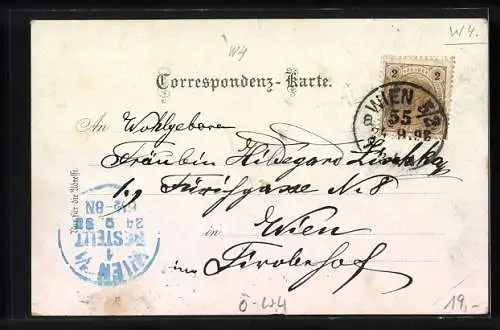 W4.
W4
Correspondenz-Karte.
2 2
WIEN 5/3
55
24.9.98
An Wohlgeboren
Fräulein Hildegard
Nur für die Adresse.
I., Fürichgasse Nr. 8
in Wien
im Tirolerhof
WIEN
1
BESTELLT
24 9 98
Ö-W4
19,-